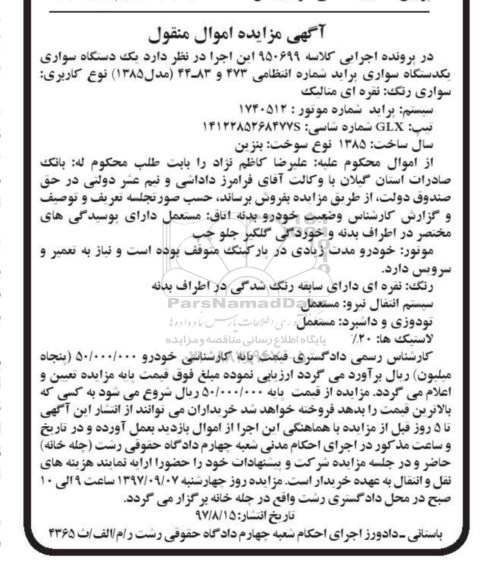 آگهی مزایده اموال منقول
در پرونده اجرایی کلاسه ۹۵۰۶۹۹ این اجرا در نظر دارد یک دستگاه سواری
یکدستگاه سواری پراید شماره انتظامی ۴۷۳ و ۸۳ـ۴۴ (مدل۱۳۸۵) نوع کاربری:
سواری رنگ: نقره ای متالیک
سیستم: پراید شماره موتور : ۱۷۴۰۵۱۲
تیپ: GLX شماره شاسی: ۱۴۱۲۲۸۵۲۶۸۴۷۷S
سال ساخت: ۱۳۸۵ نوع سوخت: بنزین
از اموال محکوم علیه: علیرضا کاظم نژاد را بابت طلب محکوم له: بانک
صادرات استان گیلان با وکالت آقای فرامرز داداشی و نیم عشر دولتی در حق
صندوق دولت، از طریق مزایده بفروش برساند، حسب صورتجلسه تعریف و توصیف
و گزارش کارشناس وضعیت خودرو بدنه اتاق: مستعمل دارای پوسیدگی های
مختصر در اطراف بدنه و خوردگی گلگیر جلو چپ
موتور: خودرو مدت زیادی در پارکینگ متوقف بوده است و نیاز به تعمیر و
سرویس دارد.
رنگ: نقره ای دارای سابقه رنگ شدگی در اطراف بدنه
ParsNamadData
سیستم انتقال نیرو: مستعمل
تودوزی و داشبرد: مستعمل
پایگاه اطلاع رسانی مناقصه و مزایده
لاستیک ها: ۲۰٪
کارشناس رسمی دادگستری قیمت پایه کارشناسی خودرو ۵۰/۰۰۰/۰۰۰ (پنجاه
میلیون) ریال برآورد می گردد ارزیابی نموده مبلغ فوق قیمت پایه مزایده تعیین و
اعلام می گردد. مزایده از قیمت پایه ۵۰/۰۰۰/۰۰۰ ریال شروع می شود به کسی که
بالاترین قیمت را بدهد فروخته خواهد شد خریداران می توانند از انتشار این آگهی
تا ۵ روز قبل از مزایده با هماهنگی این اجرا از اموال بازدید بعمل آورده و در تاریخ
و ساعت مذکور در اجرای احکام مدنی شعبه چهارم دادگاه حقوقی رشت (جله خانه)
حاضر و در جلسه مزایده شرکت و پیشنهادات خود را حضورا ارایه نمایند هزینه های
نقل و انتقال به عهده خریدار است. مزایده روز چهارشنبه ۱۳۹۷/۰۹/۰۷ ساعت ۹ الی ۱۰
صبح در محل دادگستری رشت واقع در جله خانه برگزار می گردد.
تاریخ انتشار: ۹۷/۸/۱۵
باستانی ـ دادورز اجرای احکام شعبه چهارم دادگاه حقوقی رشت ر/م/الف/ث ۴۳۶۵